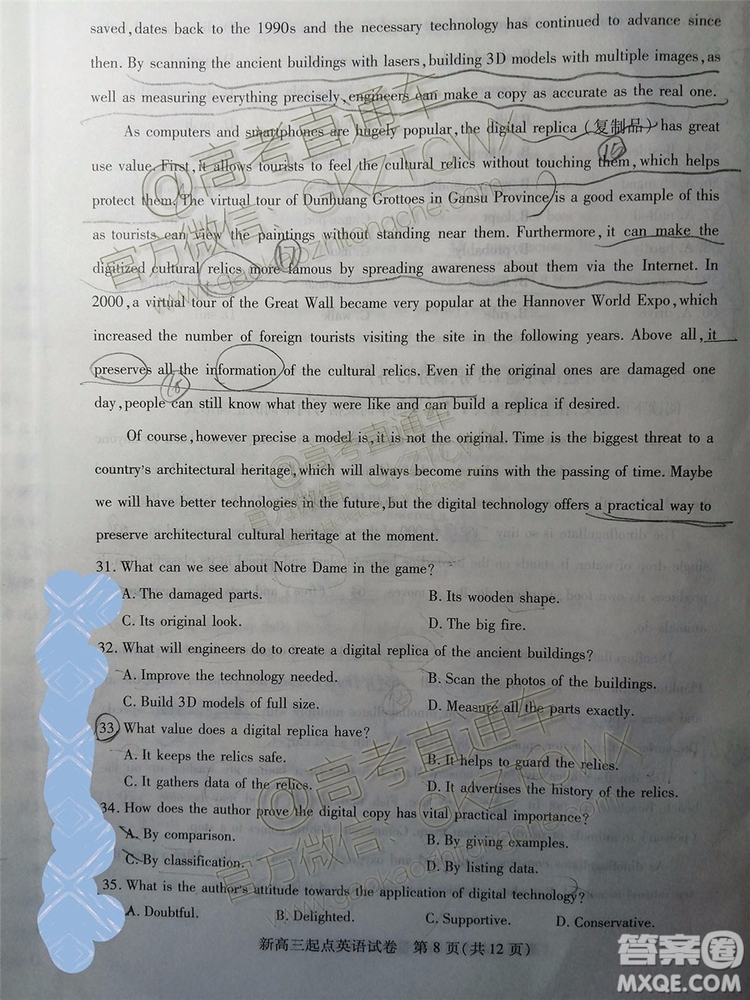 saved, dates back to the 1990s and the necessary technology has continued to advance since
then. By scanning the ancient buildings with lasers, building 3D models with multiple images, as
well as measuring everything precisely, engineers can make a copy as accurate as the real one.
As computers and smartphones are hugely popular, the digital replica (复制品) has great
use value. First, it allows tourists to feel the cultural relics without touching them, which helps
protect them. The virtual tour of Dunhuang Grottoes in Gansu Province is a good example of this
as tourists can view the paintings without standing near them. Furthermore, it can make the
digitized cultural relics more famous by spreading awareness about them via the Internet. In
2000, a virtual tour of the Great Wall became very popular at the Hannover World Expo, which
increased the number of foreign tourists visiting the site in the following years. Above all, it
preserves all the information of the cultural relics. Even if the original ones are damaged one
day, people can still know what they were like and can build a replica if desired.
Of course, however precise a model is, it is not the original. Time is the biggest threat to a
country's architectural heritage, which will always become ruins with the passing of time. Maybe
we will have better technologies in the future, but the digital technology offers a practical way to
preserve architectural cultural heritage at the moment.
31. What can we see about Notre Dame in the game?
A. The damaged parts. B. Its wooden shape.
C. Its original look. D. The big fire.
32. What will engineers do to create a digital replica of the ancient buildings?
A. Improve the technology needed. B. Scan the photos of the buildings.
C. Build 3D models of full size. D. Measure all the parts exactly.
33. What value does a digital replica have?
A. It keeps the relics safe. B. It helps to guard the relics.
C. It gathers data of the relics. D. It advertises the history of the relics.
34. How does the author prove the digital copy has vital practical importance?
A. By comparison. B. By giving examples.
C. By classification. D. By listing data.
35. What is the author's attitude towards the application of digital technology?
A. Doubtful. B. Delighted. C. Supportive. D. Conservative.
新高三起点英语试卷 第 8 页(共 12 页)
@高考直通车
官方微信：GKZTCWX
www.gaokaozhitongche.com
@高考直通车
官方微信：GKZTCWX
www.gaokaozhitongche.com
答案圈
MXQE.COM